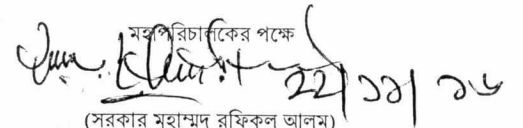 মহাপরিচালকের পক্ষে
২২/১১/১৬
(সরকার মুহাম্মদ রফিকুল আলম)